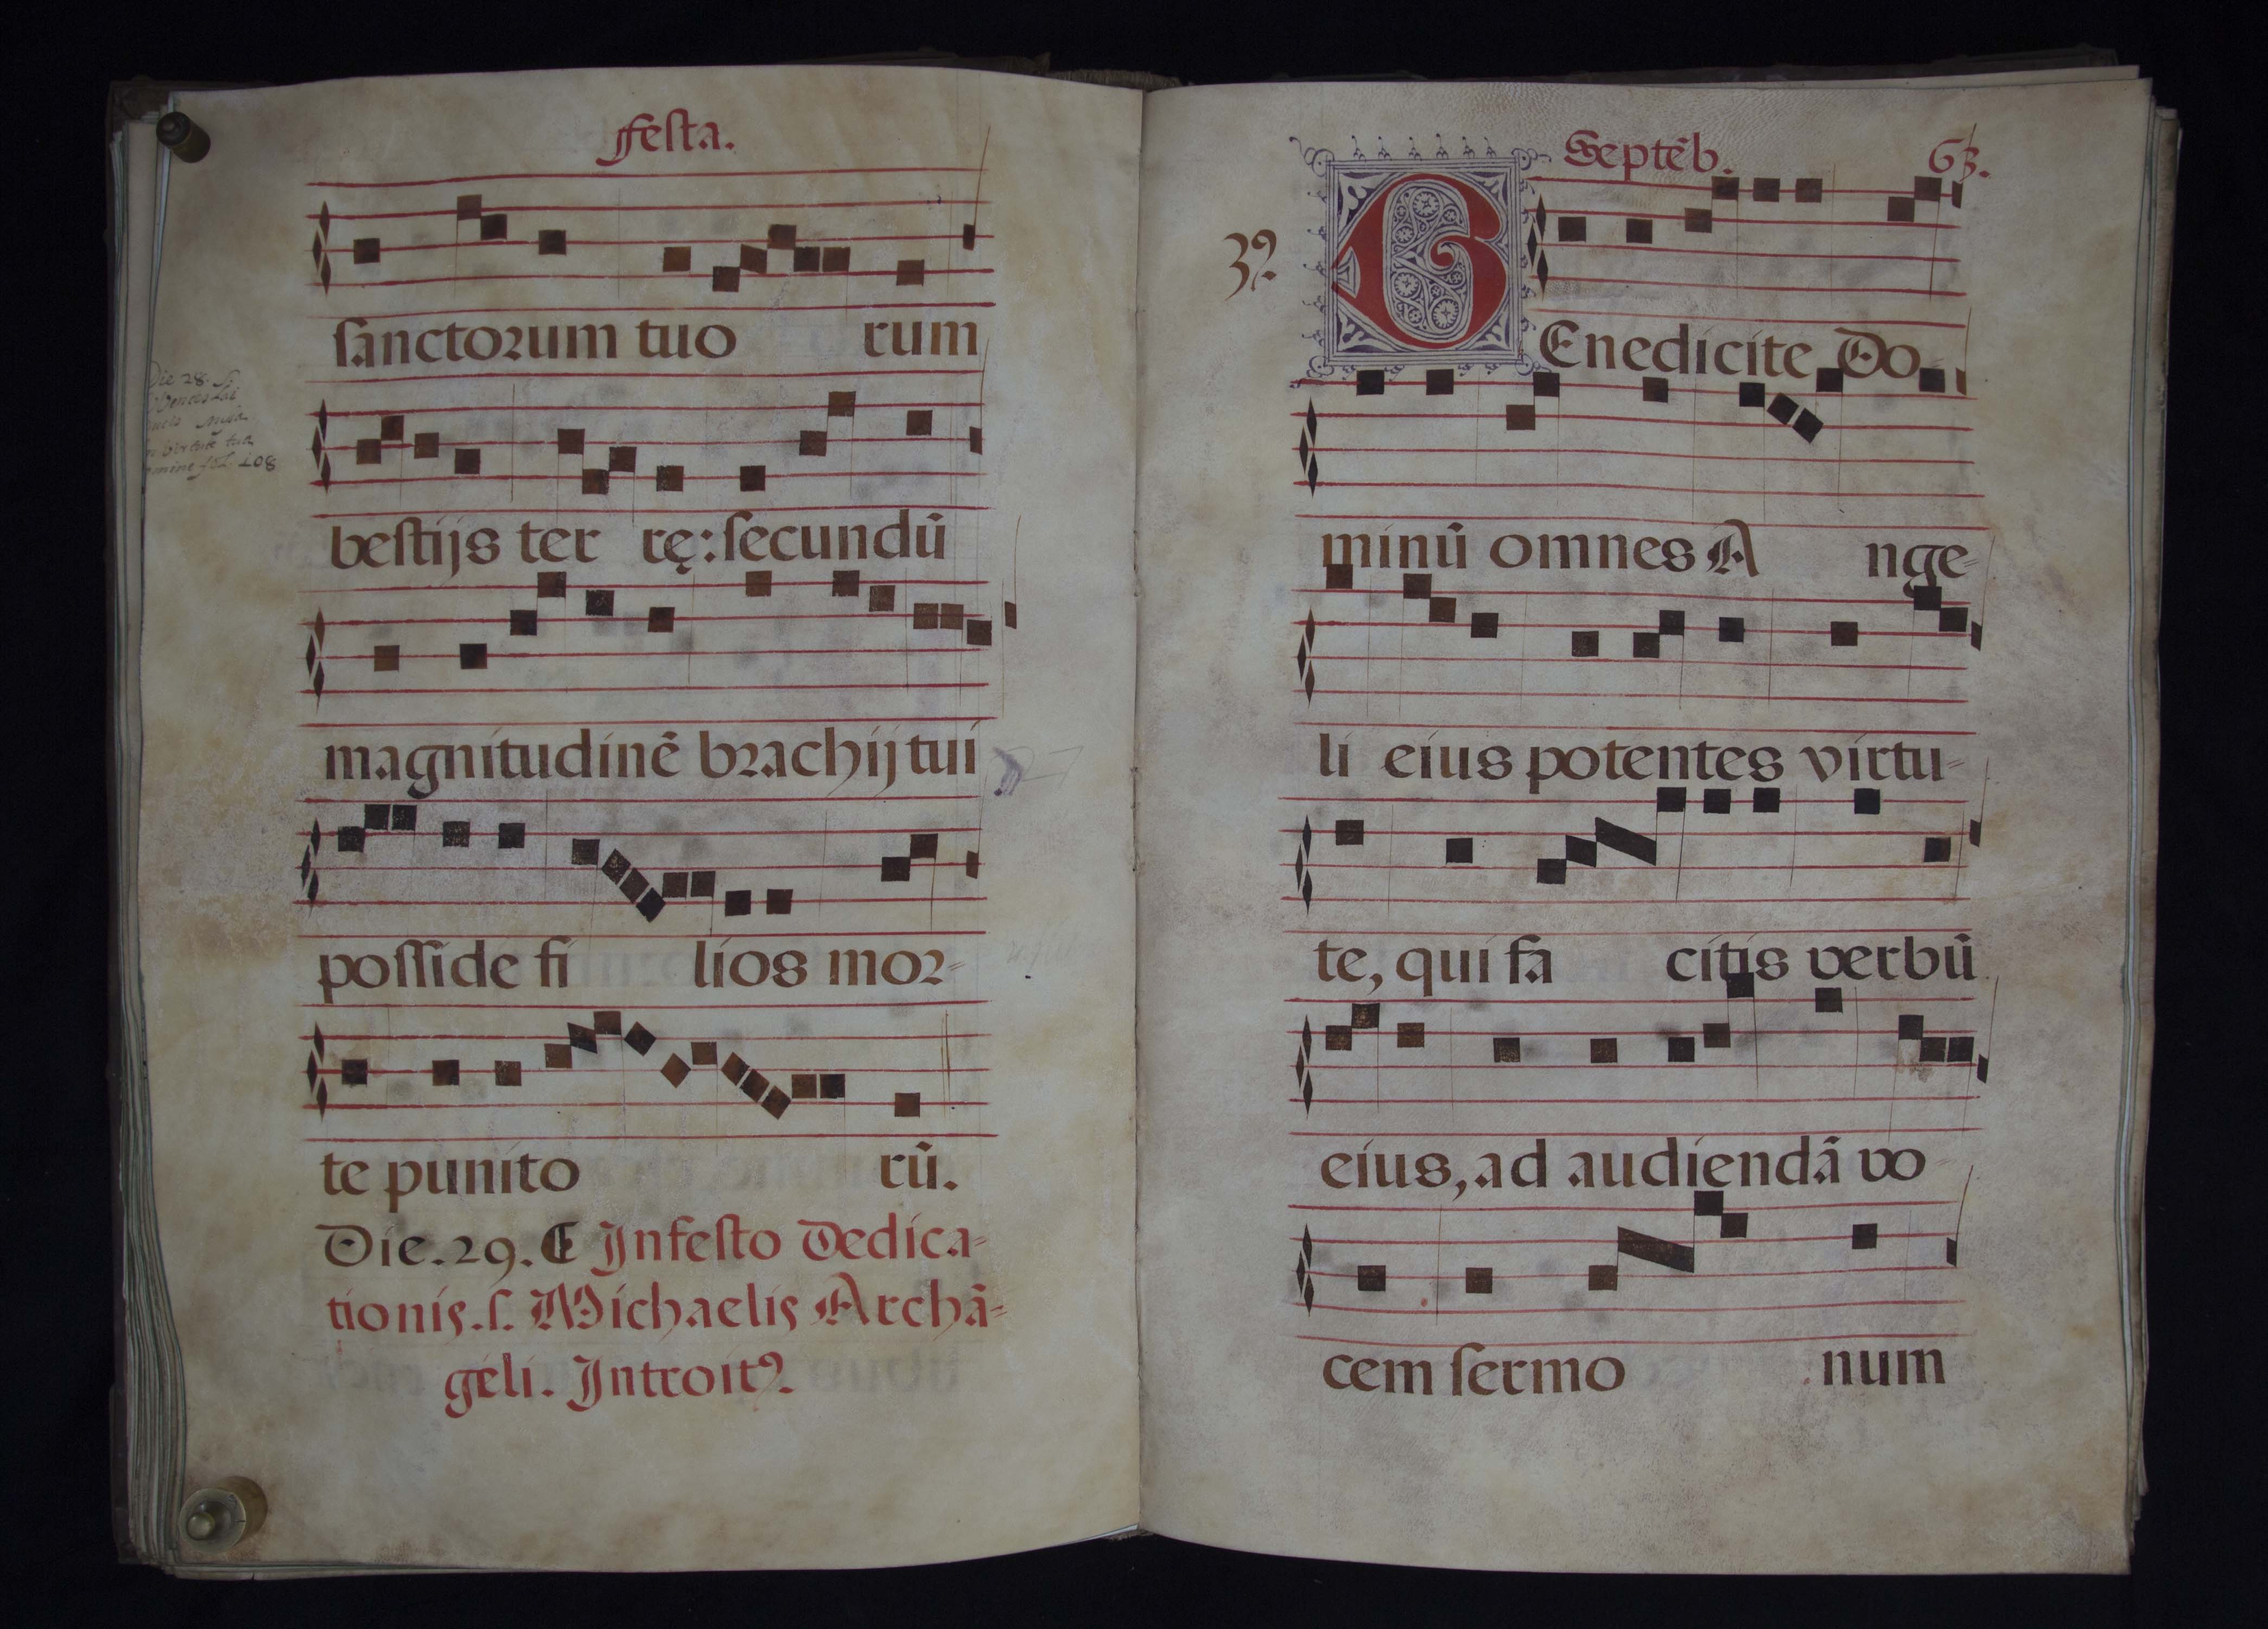 Festa.
sanctorum tuo rum
Die 28. S.
108
bestijs ter rę: secundū
magnitudinē brachij tui
posside fi lios mor-
te punito rū.
Die. 29. In festo Dedica-
tionis. s. Michaelis Archā-
geli. Introitꝰ.
Septēb. 63.
3ꝰ.
BEnedicite Do-
minū omnes A nge-
li eius potentes virtu-
te, qui fa citis verbū
eius, ad audiendā vo-
cem sermo num